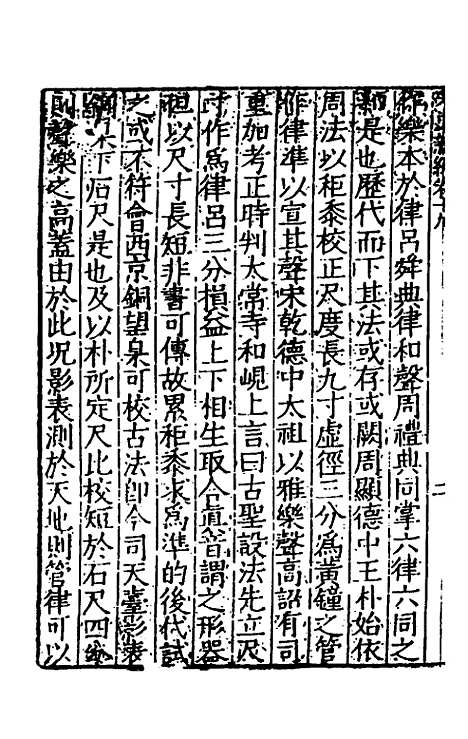 作樂本於律呂舜典律和聲周禮典同掌六律六同之
和是也歷代而下其法或存或闕周顯德中王朴始依
周法以秬黍校正尺度長九寸虛徑三分為黃鐘之管
作律準以宣其聲宋乾德中太祖以雅樂聲高詔有司
重加考正時判太常寺和峴上言曰古聖設法先立尺
寸作為律呂三分損益上下相生取合真音謂之形器
但以尺寸長短非書可傳故累秬黍求為準的後代試
之或不符會西京銅望臬可校古法即今司天臺影表
下石尺是也及以朴所定尺比校短於石尺四
則聲樂之高蓋由於此況影表測於天地則管律可以
二